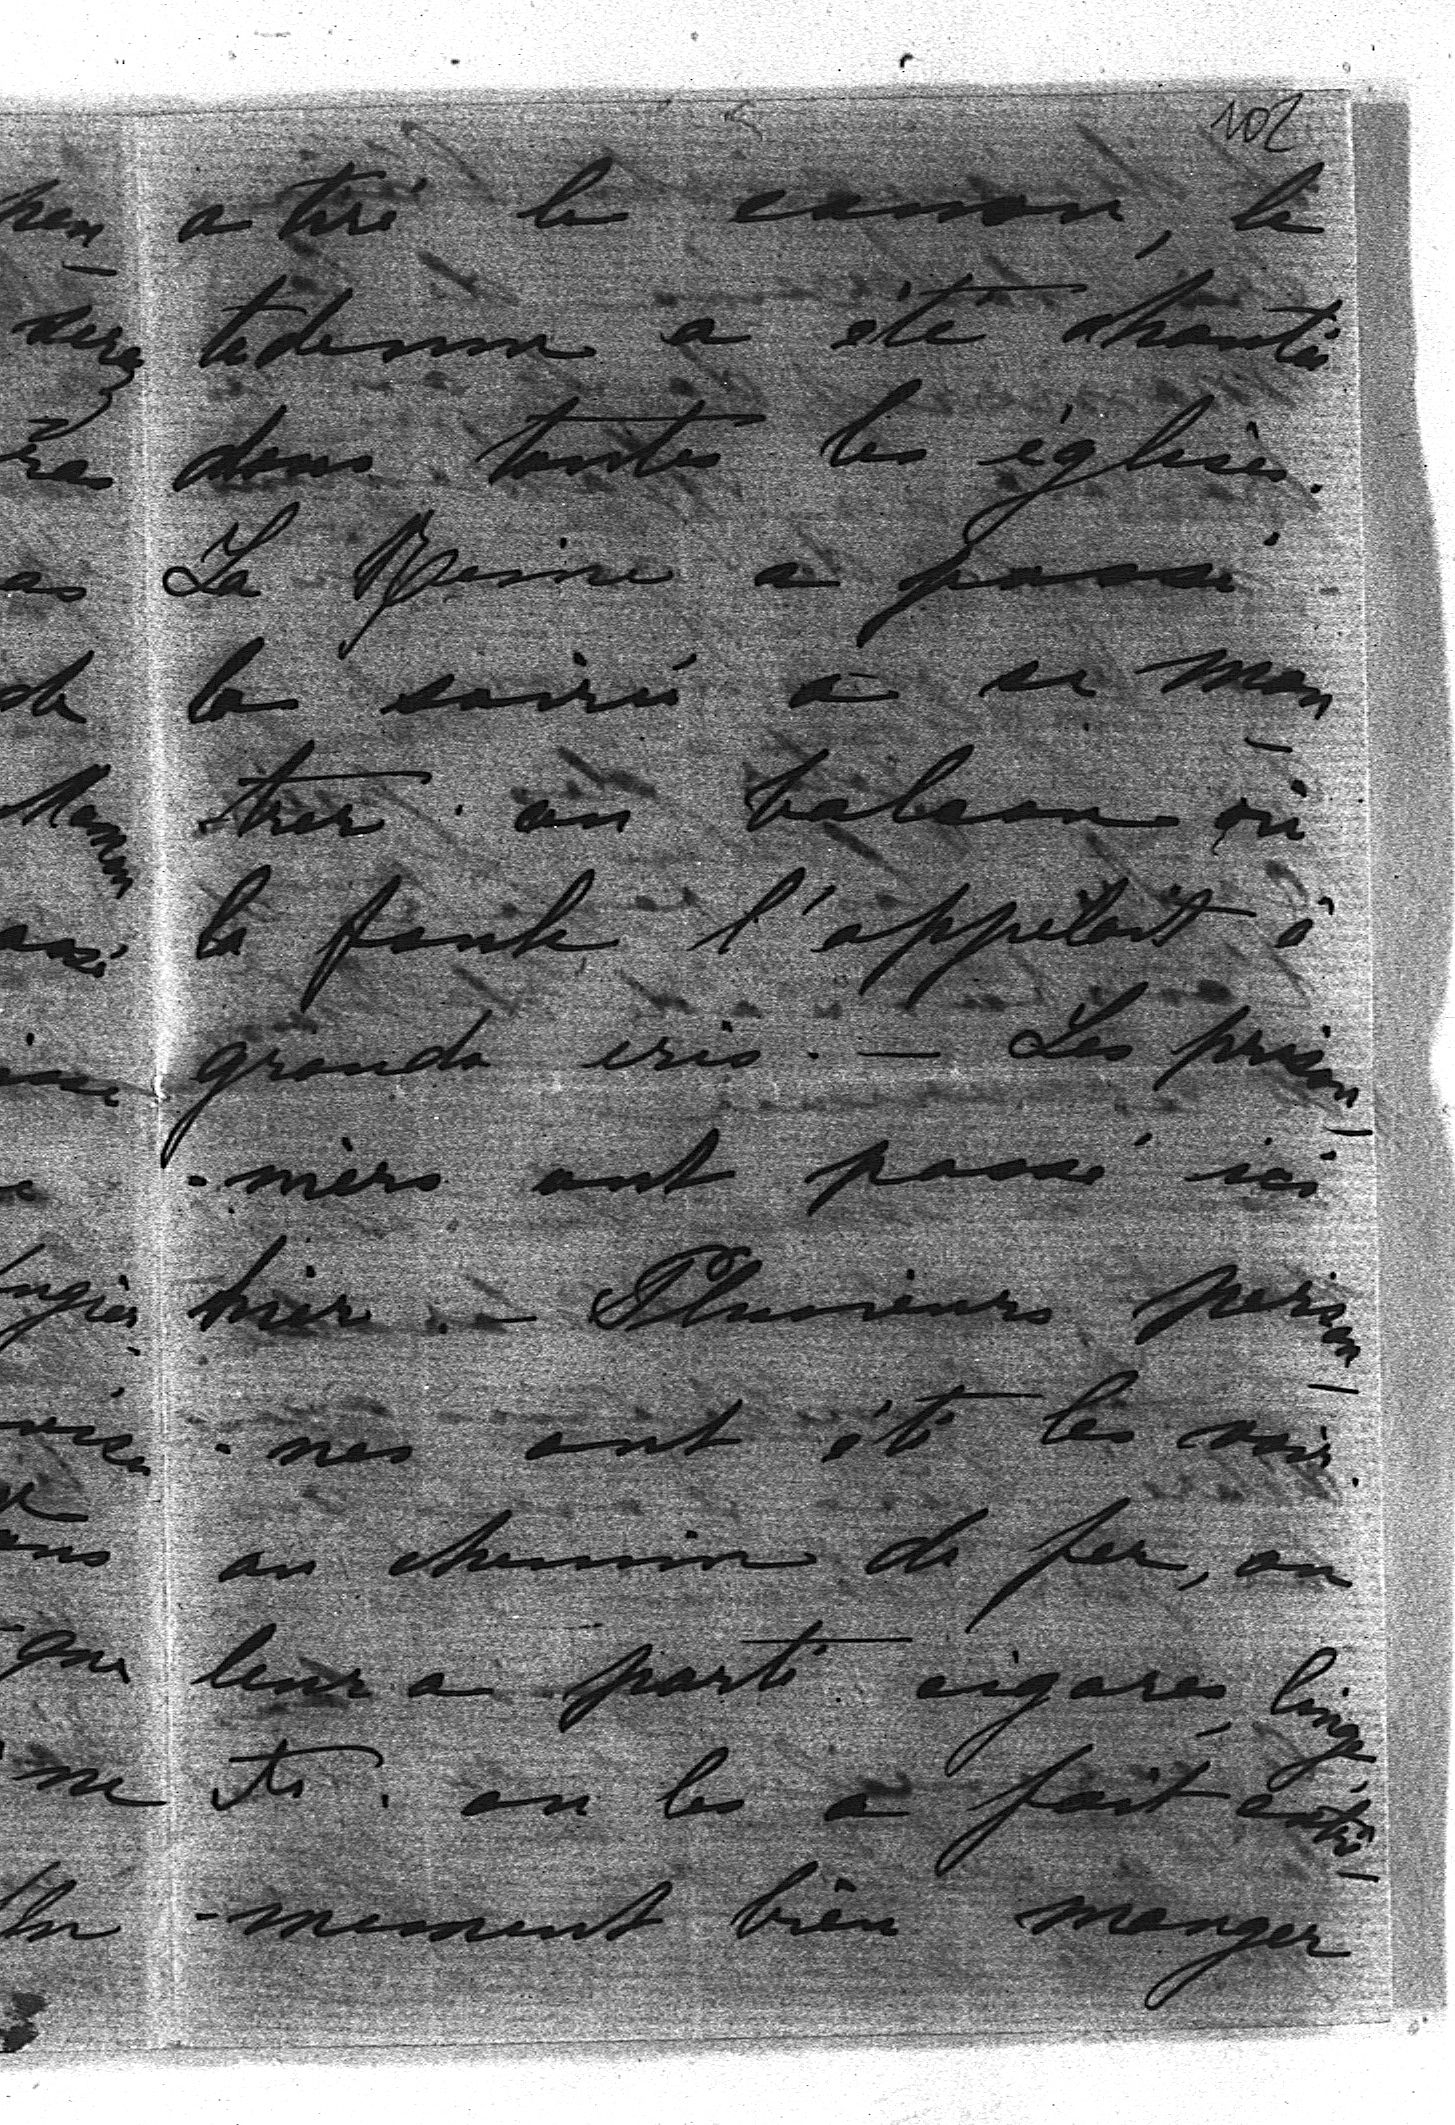 102
a tiré le canon, le
tedeum a été chantée
dans toutes les églises.
La Reine a passé
la soirée à se mon
trer au balcon où
la foule l'appelait à
grands cris. — Les prison
-niers ont passé ici
hier. — Plusieurs person
-nes ont été les voir.
au chemin de fer, on
leur a porté cigares, linge,
on les a fait extrê-
-mement bien manger